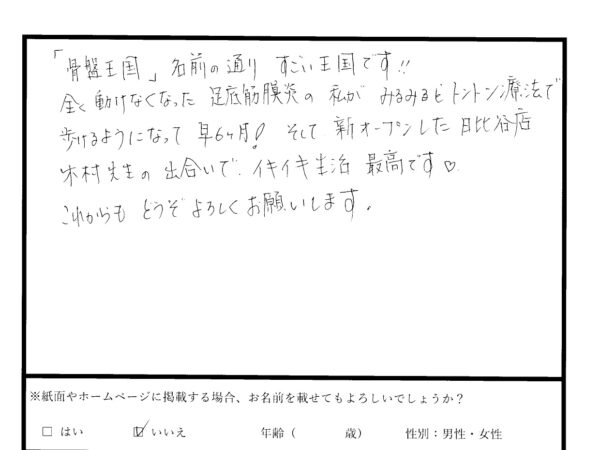 「骨盤王国」名前の通り すごい王国です!!
全く動けなくなった 足底筋膜炎の 私が みるみるとトントン療法で
歩けるようになって 早6ヶ月! そして 新オープンした 日比谷店
木村先生の 出合いで イキイキ生活 最高です♡
これからも どうぞ よろしく お願いします。
※紙面やホームページに掲載する場合、お名前を載せてもよろしいでしょうか？
□ はい ☑ いいえ 年齢（ 歳） 性別：男性・女性